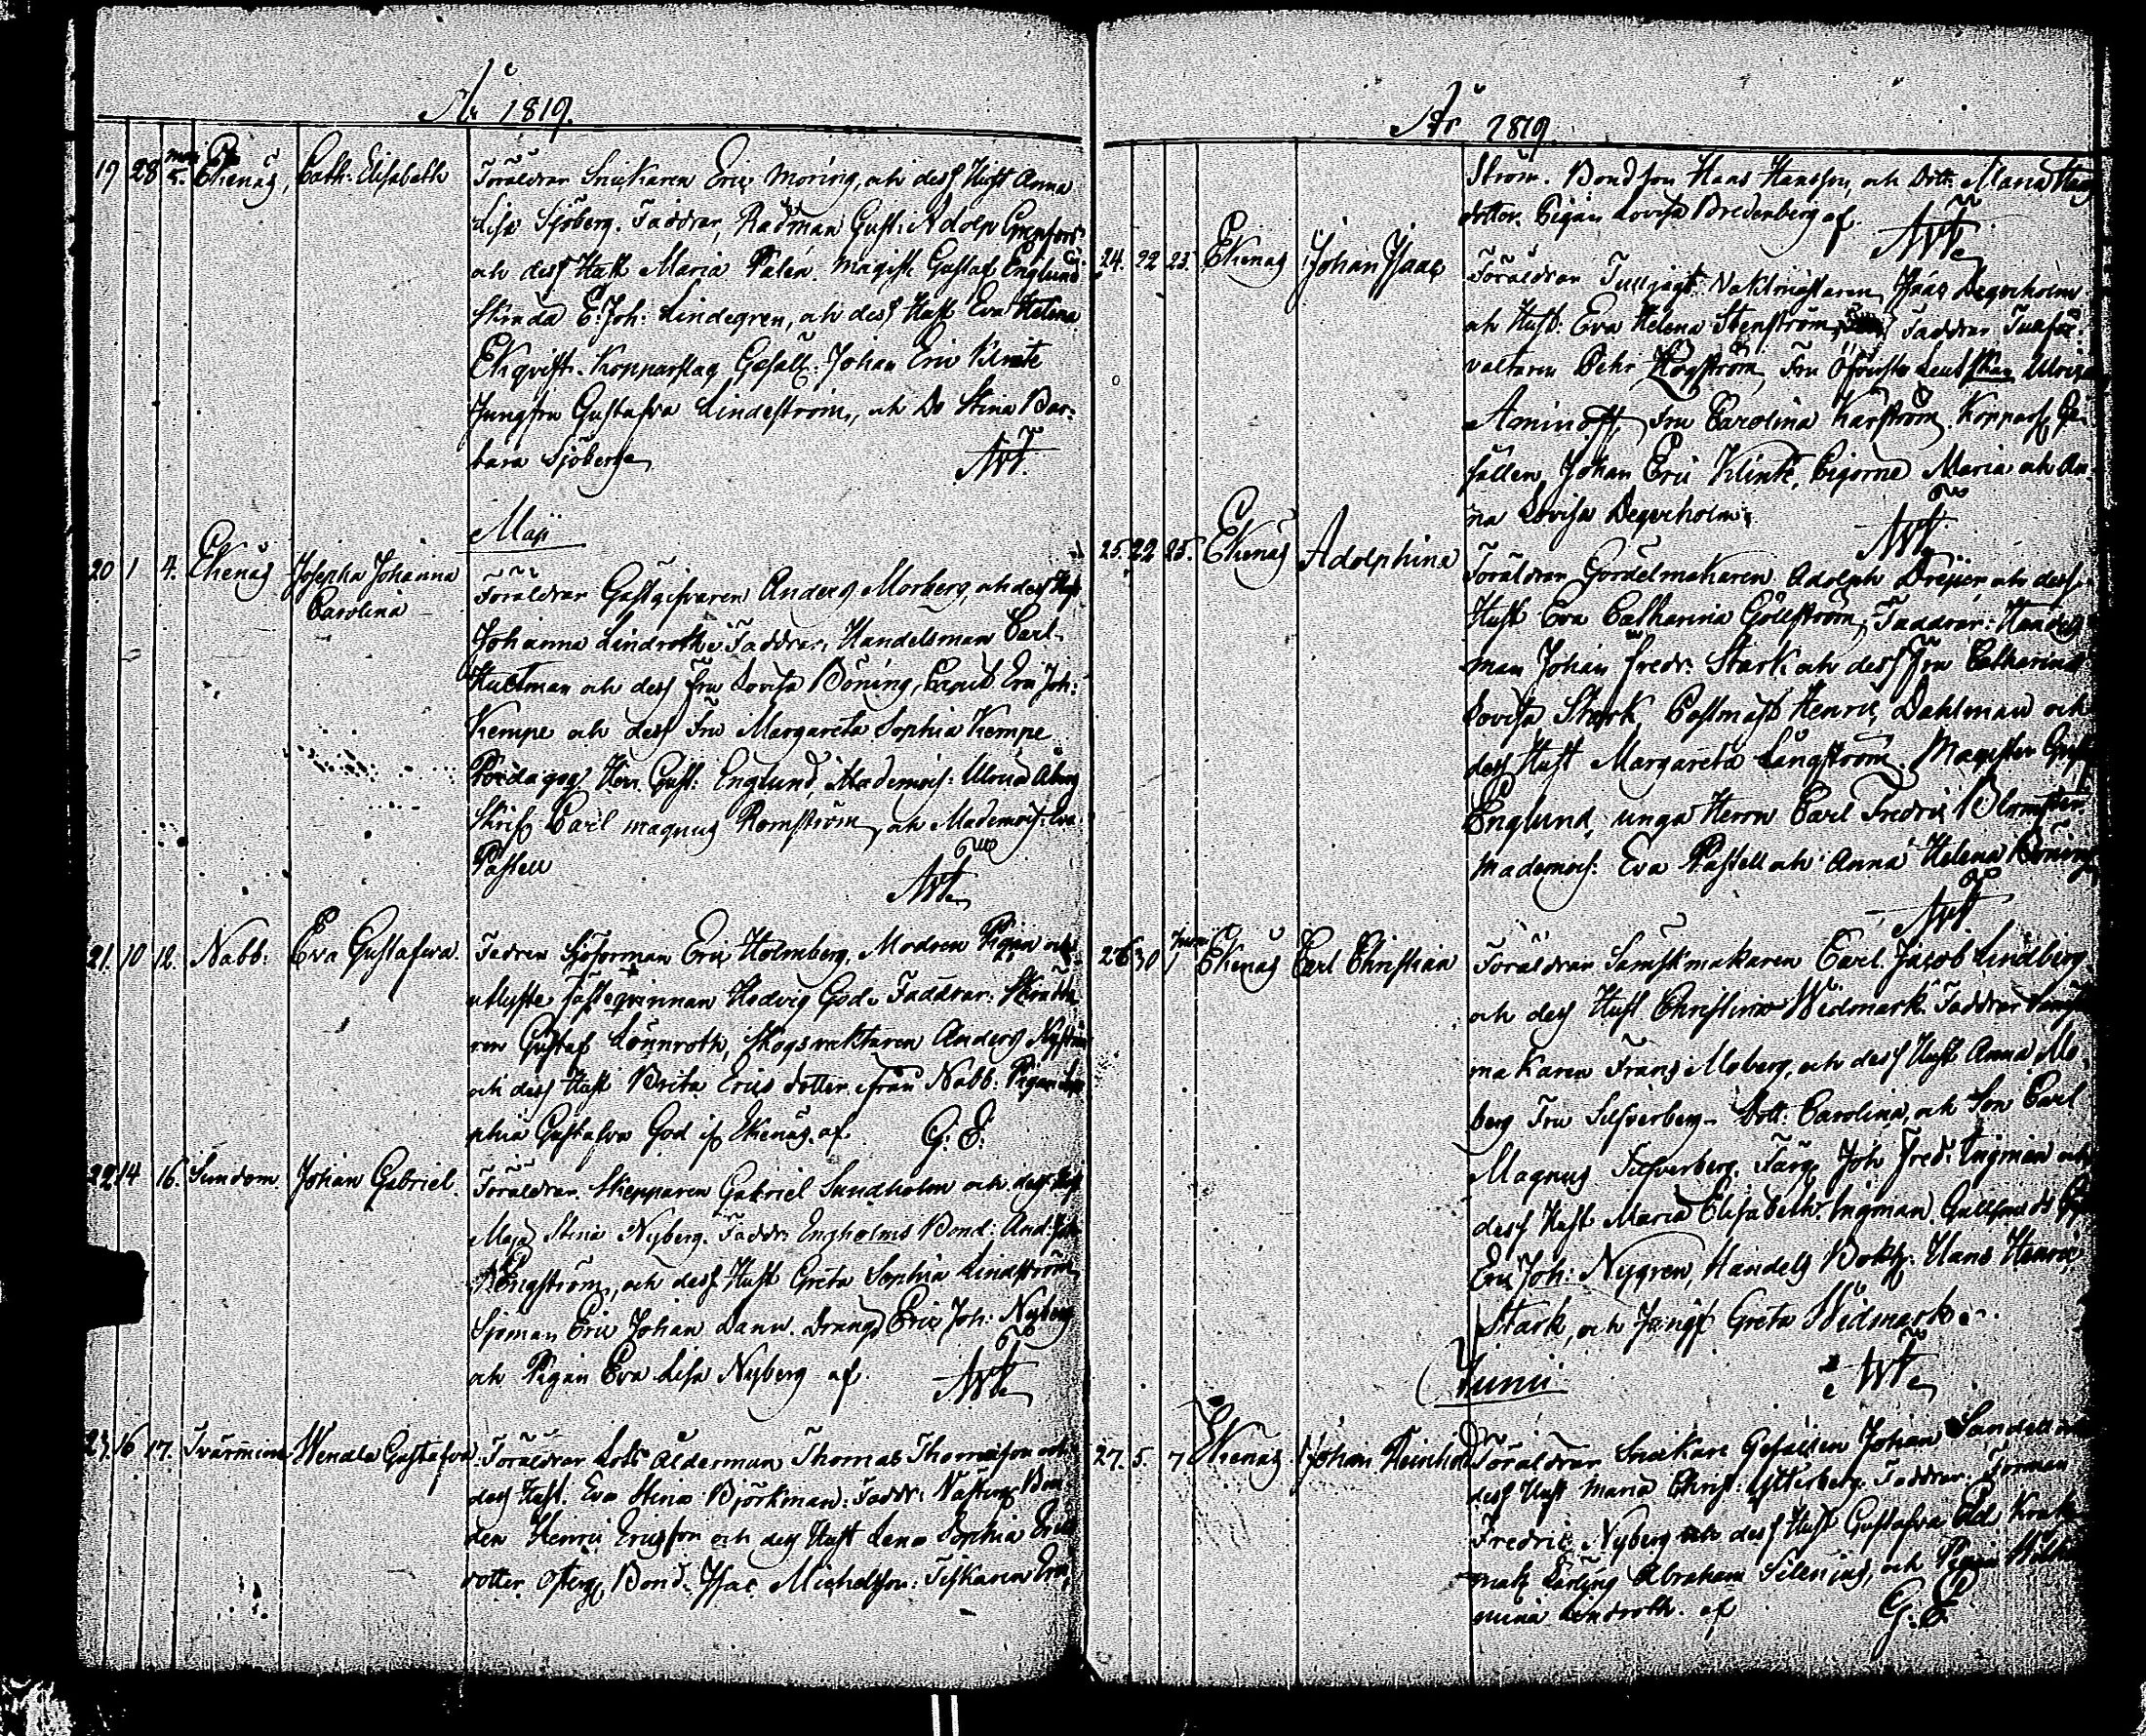 År 1819.
19 28 Maj 5. Ekenäs, Cath: Elisabeth Föräldrar Snickaren Eric Moring, och dess Hust Anna
Lisa Sjöberg. Faddrar, Rådman Gust: Adolp
och dess Hust Maria Palén. Magist Gustaf Englund
E: Joh: Lindegren, och dess Hust Eva Helena
Ekqvist. Kopparslag Gesäll: Johan Eric Klinte
Jungfru Gustafva Lindeström, och Do Stina Bar-
bara Sjöberg
Maji
20 1 4. Ekenäs Josepha Johanna Föräldrar Gästgifvaren Anders Morberg, och dess Hust
Carolina
Johanna Lindroth. Faddrar, Handelsman Carl
Hultman och dess Fru Lovisa Böning, Eric Joh:
Kempe och dess Fru Margareta Sophia Kempe
Pædagog Herr Gust: Englund, Mademois: Ulrica Åberg
Skrif Carl Magnus Romström, och Mademois: Eva
Påstell
21. 10 12. Nabb: Eva Gustafva. Fadren Sjöforman Eric Holmberg, Modren Pigan och
utlyste fästeqvinnan Hedvig God. Faddrar: Skrädda-
ren Gustaf Lönnroth, Skogsvaktaren Anders Nyström
och dess Hust Brita Erics dotter ifrån Nabb. Pigan So-
phia Gustafva God if Ekenäs af. G: E:
22 14 16. Sundom. Johan Gabriel. Föräldrar Skepparen Gabriel Sundholm och dess Hust
Maja Stina Nyberg. Faddr: Engholms Bond: And: Joh
Engström, och dess Hust Greta Sophia Lindström
Sjöman Eric Johan Dann. Dräng Eric Joh: Nyberg
och Pigan Eva Lisa Nyberg af
23. 16 17. Tvärminne Wendla Gustafva Föräldrar Lots Ålderman Thomas Thomasson och
dess Hust. Eva Stina Björkman: Faddr: Bon
den Henric Ericsson och dess Hust Lena Sophia Erics
dotter Bond. Isac Michelsson: Fiskaren Eric
År 1819
Ström. Bondson Hans Hansson, och Dott: Maria Hans
dotter. Pigan Lovisa Bredenberg af
24. 22 23. Ekenäs Johan Isaac Föräldrar Tulljagt: Vaktmästaren, Isaac Degerholm
och Hust: Eva Helena Stenström, Faddrar Tullför-
valtaren Pehr Högström, Fru Öfverste Leut Ulrica
Aminoff, Fru Carolina Karström. Kopparsl Ge-
sällen Johan Eric Klinte, Pigorne Maria och An-
na Lovisa Degerholm
25. 22 25. Ekenäs Adolphina Föräldrar Gördelmakaren Adolph Dreijer och dess
Hust Eva Catharina Göllström, Faddrar: Handels
man Johan Fredr: Stark och dess Fru Catharina
Lovisa Stark, Postmäst Henric Dahlman och
dess Hust Margareta Långström. Magister Gust
Englund, unga Herrn Carl Fredric Blomster
Mademois: Eva Påstell och Anna Helena Böning
26 30 Juni 1 Ekenäs Carl Christian Föräldrar Sämskmakaren Carl Jacob Lindberg
och dess Hust Christina Widmark. Faddrar
makaren Frans Moberg, och dess Hust Anna Mo-
berg Fru Silfverberg. Dott: Carolina, och Son Carl
Magnus Silfverberg. Färg: Joh Fred: Ingman och
dess Hust Maria Elisabeth Ingman.
Eric Joh: Nygren, Handels Bokh: Hans Henric
Stark, och Jungf Greta Widmark.
Junii
27. 5. 7. Ekenäs Johan Reinhold Föräldrar Snickare Gesällen Johan Sandell och
dess Hust Maria Christ. Ytterberg. Faddrar. Forman
Fredric Nyberg och dess Hust Gustafva Krok
mak Lärling Abraham Silenius, och Pigan
mina Lindroth. af G: E.